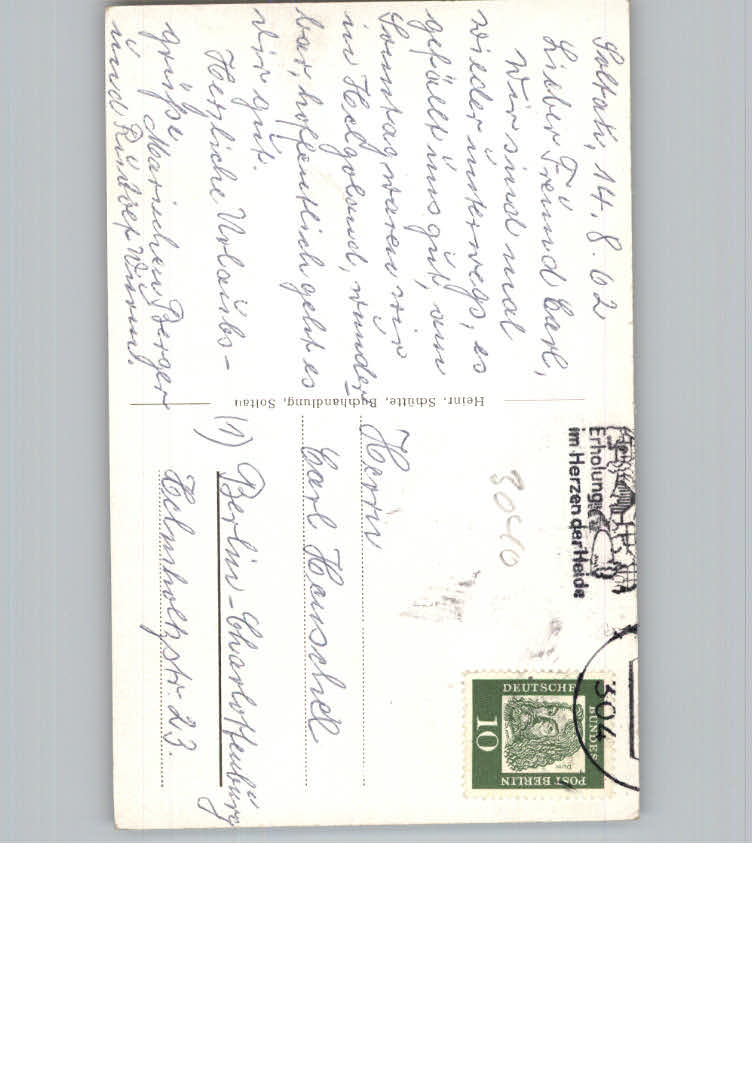 Soltau, 14. 8. 62
Lieber Freund Carl,
Wir sind mal
wieder unterwegs, es
gefällt uns gut, am
Sonntag waren wir
in Helgoland, wunder
bar, hoffentlich geht es
Dir gut.
Herzliche Urlaubs-
grüße
Mariechen Berger
und
Heinr. Schütte, Buchhandlung, Soltau
Erholung
im Herzen der Heide
304
DEUTSCHE
BUNDES
POST BERLIN
10
Dürer
3040
Herrn
Carl Henschel
(1) Berlin-Charlottenburg
Helmholtzstr. 23.